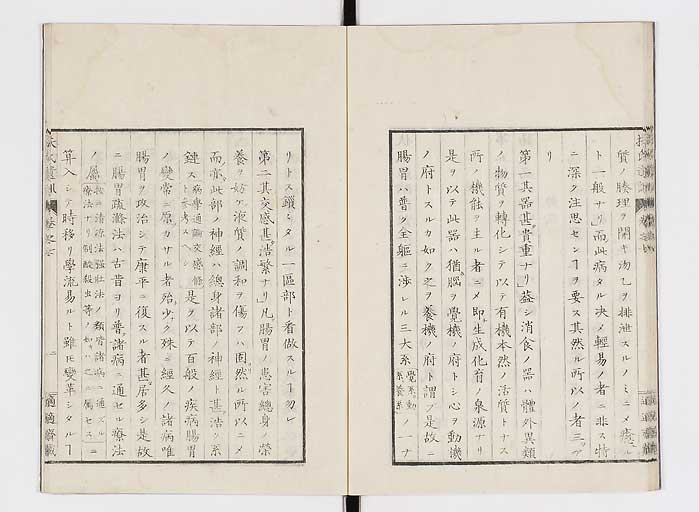 質ノ腠理ヲ開キ汤乙ヲ排泄スルノミニメ癒ル
ト一般ナリ而此病タル决メ輕易ノ者ニ非ス特
ニ深ク注思センヿヲ要ス其然ル所以ノ者三アリ
第一其器甚貴重ナリ葢シ消食ノ器ハ體外異類
ノ物質ヲ轉化シテ以テ有機本然ノ活質トナス
所ノ機能ヲ主ル者ニメ即生成化育ノ泉源ナリ
是ヲ以テ此器ハ猶腦ヲ覺機ノ府トシ心ヲ動機
ノ府トスルカ如ク之ヲ養機ノ府ト謂フ是故ニ
腸胃ハ普ク全軀ニ涉レル三大系覺系動系養系ノ一ナ
リトス鎖ミタル一區部ト看做スルヿ勿レ
第二其交感甚浩繁ナリ凡腸胃ノ患害總身ノ榮
養ヲ妨ケ液質ノ調和ヲ傷フハ固然ル所以ニメ
而亦此部ノ神經ハ總身諸部ノ神經ト甚治ク系
鏈ス病學通論交感條ト參考スヘシ是ヲ以テ百般ノ疾病腸胃
ノ變常ニ原カサル者殆少ク殊ニ經久ノ諸病唯
腸胃ヲ攻治シテ康平ニ復スル者甚居多シ是故
ニ腸胃疏滌法ハ古昔ヨリ普諸病ニ通セル療法
ノ屬
算入シテ時移リ學流易ルト雖モ變革シタルヿ
卷之七
二
適適齋藏